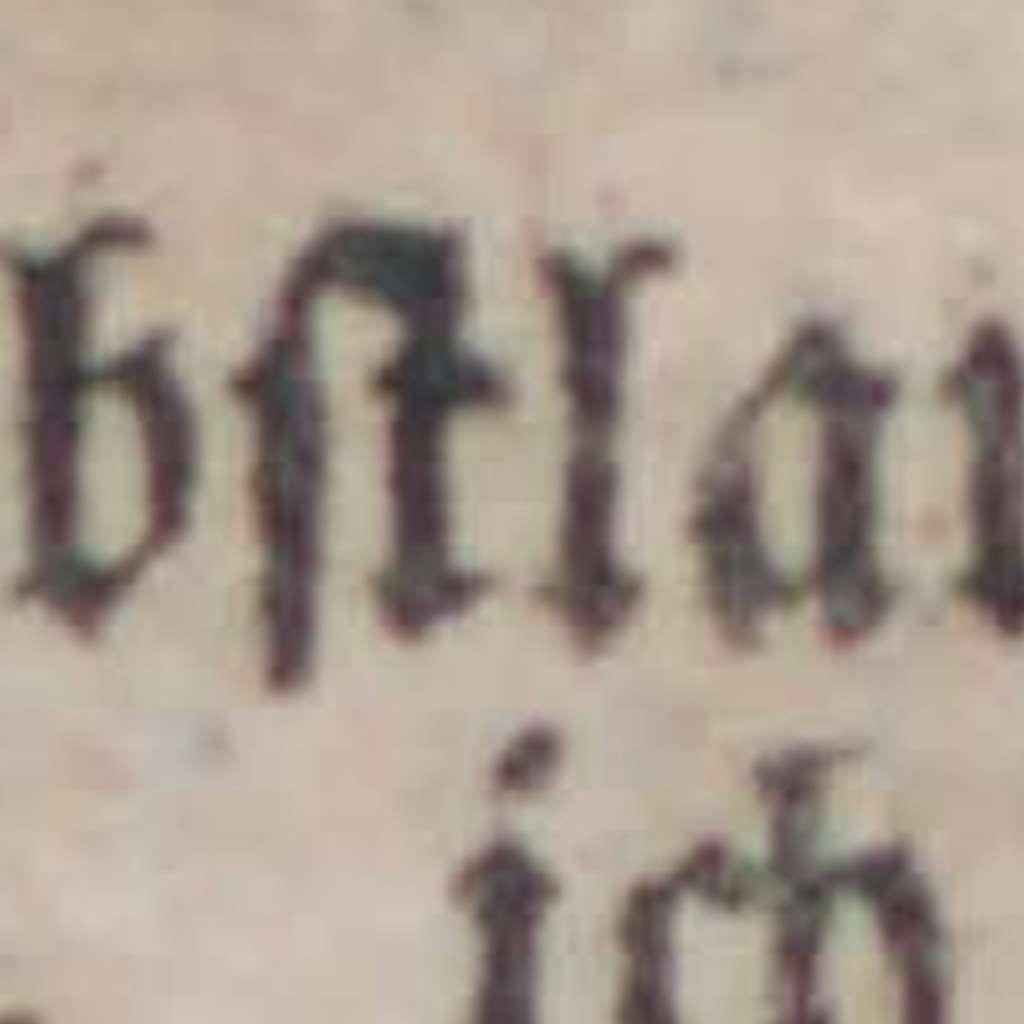 bſtlan
ich